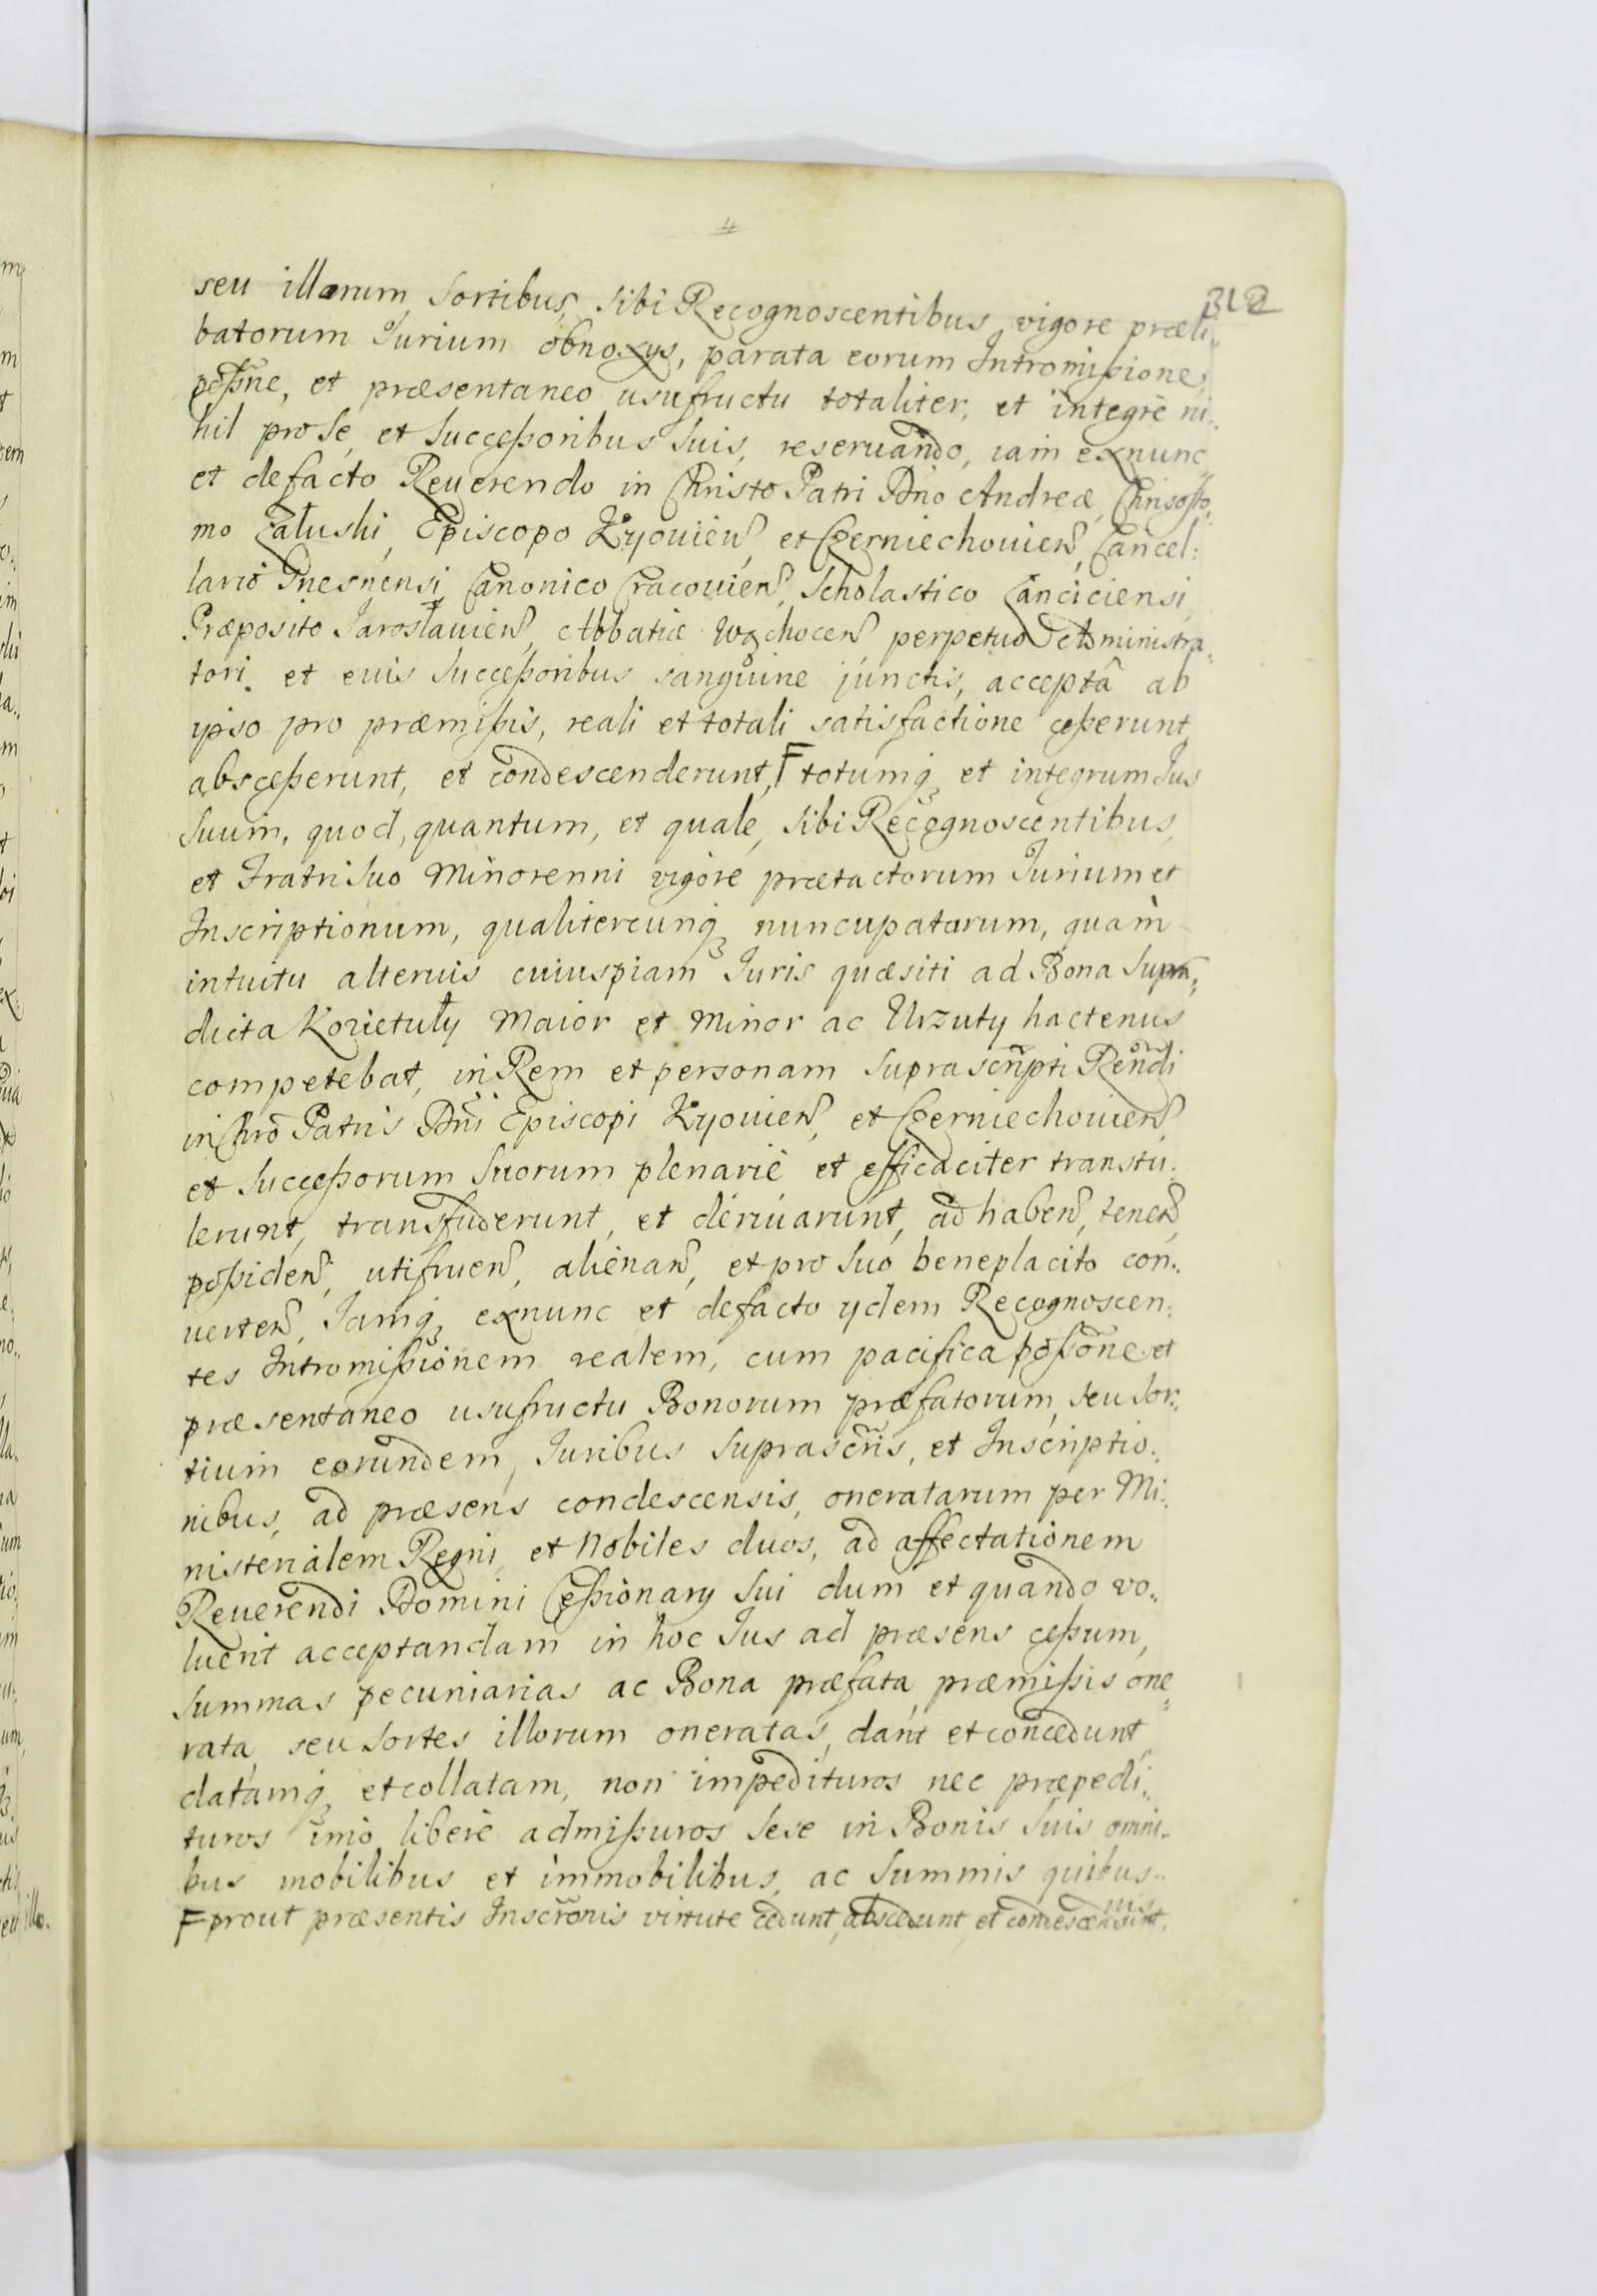 4
312
seu illorum sortibus, sibi Recognoscentibus vigore præli..
batorum Iurium obnoxys, parata eorum Intromißione,
poßne, et præsentaneo usufructu totaliter, et integrè ni..
hil pro se, et succeßoribus suis, reseruando, iam exnunc
et defacto Reuerendo in Christo Patri Dno Andreæ Chrisosto..
mo Załuski, Episcopo Kyouien, et Czerniechouien, Cancel:
lario Gnesnensi, Canonico Cracouien, Scholastico Lanciciensi,
Præposito Jarosławien, Abbatiæ Wąchocen perpetuo Administra..
tori. et euis succeßoribus sanguine junctis, acceptâ ab
ypso pro præmißis, reali et totali satisfactione ceßerunt,
absceßerunt, et condescenderunt, F totumq et integrum Jus
suum, quod, quantum, et quale, sibi Recognoscentibus,
et Fratri suo Minorenni vigore prætactorum Iurium et
Inscriptionum, qualitercunq nuncupatarum, quam
intuitu alteruis cuiuspiam Iuris quæsiti ad Bona supra..
dicta Kozietuły Maior et Minor ac Urzuty hactenus
competebat, in Rem et personam suprascripti Rendi
in Chro Patris Dni Episcopi Kyouien, et Czerniechouien,
et succeßorum suorum plenariè et efficaciter transtu..
lerunt, transfuderunt, et deriuarunt, ad haben, tenen,
poßiden, utifruen, alienan, et pro suo beneplacito con..
uerten, Jamq exnunc et defacto ydem Recognoscen:
tes Intromißionem realem, cum pacifica poßone et
præsentaneo usufructu Bonorum præfatorum, seu sor..
tium eorundem, Iuribus suprascris, et Inscriptio..
nibus, ad præsens condescensis, oneratarum per Mi..
nisterialem Regni, et Nobiles duos, ad affectationem
Reuerendi Domini Ceßionary sui dum et quando vo..
luerit acceptandam in hoc Jus ad præsens ceßum,
summas pecuniarias ac Bona præfata, præmißis one..
rata, seu sortes illorum oneratas, dant et concedunt,
datamq et collatam, non impedituros nec præpedi..
turos imo liberè admißuros sese in Bonis suis omni..
bus mobilibus et immobilibus, ac summis quibus..
nis
F prout præsentis Inscronis virtute cedunt, abscedunt, et condescendunt.